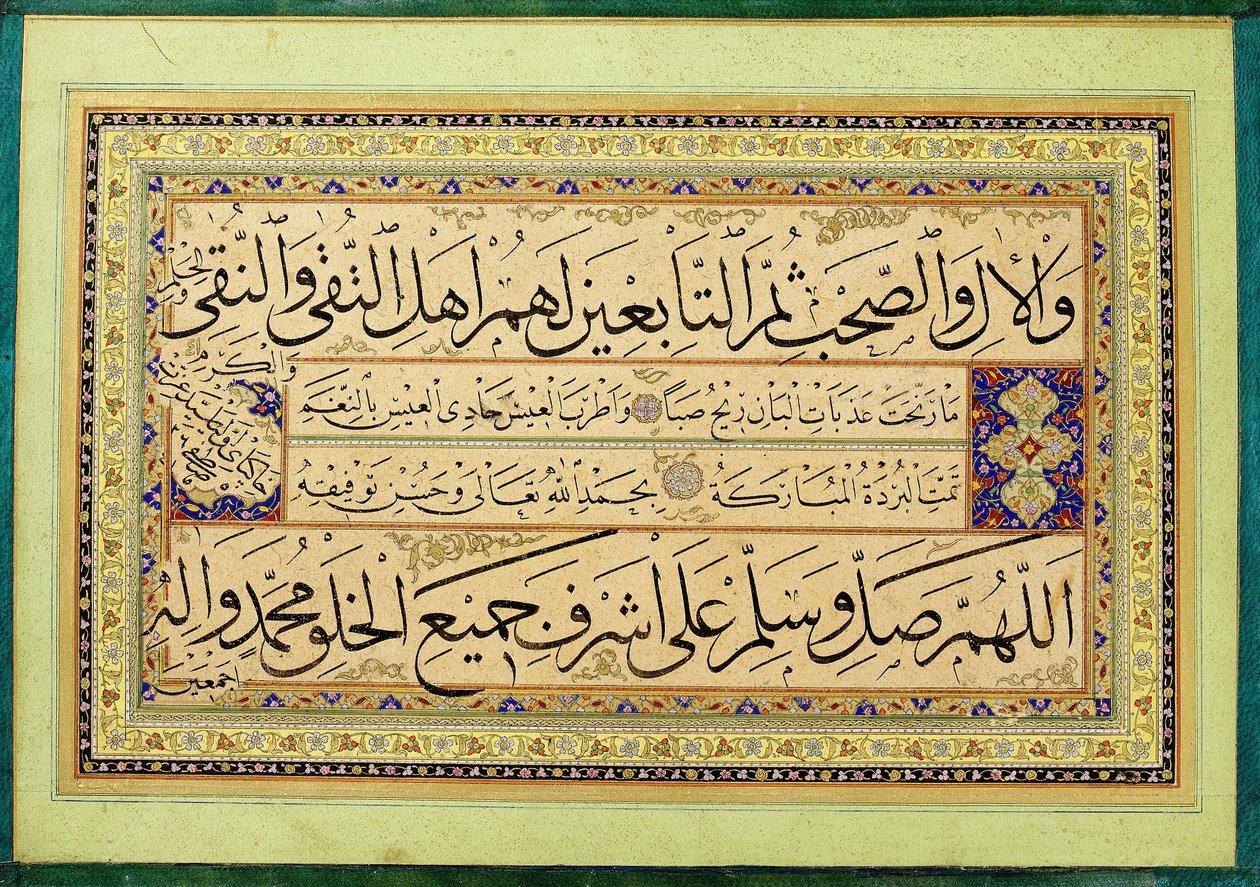 وَالْاٰلِ وَالصَّحْبِ ثُمَّ التَّابِعِينَ لَهُمْ اَهْلِ التُّقٰى وَالنُّقٰى وَالْحِلْمِ وَالْكَرَمِ
مَا رَنَّحَتْ عَذَبَاتِ الْبَانِ رِيحُ صَبًا وَاَطْرَبَ الْعِيسَ حَادِى الْعِيسِ بِالنَّغَمِ
تَمَّتِ الْبُرْدَةُ الْمُبَارَكَةُ بِحَمْدِ اللّٰهِ تَعَالٰى وَحُسْنِ تَوْفِيقِهِ
اَللّٰهُمَّ صَلِّ وَسَلِّمْ عَلٰى اَشْرَفِ جَمِيعِ الْخَلْقِ مُحَمَّدٍ وَاٰلِهِ اَجْمَعِينَ